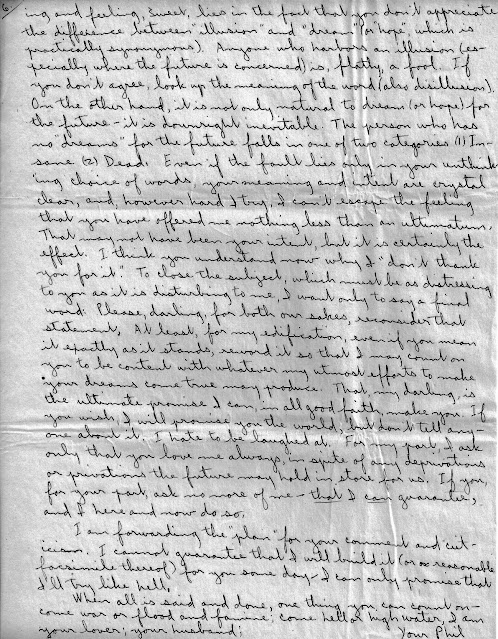 6.
ing and feeling, Sweet, lies in the fact that you don't appreciate
the difference between "illusion" and "dream" (or hope, which is
practically synonymous). Anyone who harbors an illusion (es-
pecially where the future is concerned) is, flatly, a fool. If
you don't agree, look up the meaning of the word (also disillusion).
On the other hand, it is not only natural to dream (or hope) for
the future - it is downright inevitable. The person who has
no "dreams" for the future falls in one of two categories (1) In-
sane (2) Dead. Even if the fault lies only in your unthink-
ing choice of words, your meaning and intent are crystal
clear, and, however hard I try, I can't escape the feeling
that you have offered me nothing less than an ultimatum.
That may not have been your intent, but it is certainly the
effect. I think you understand now why I "don't thank
you for it". To close the subject, which must be as distressing
to you as it is disturbing to me, I want only to say a final
word. Please, darling, for both our sakes, reconsider that
statement. At least, for my edification, even if you mean
it exactly as it stands, reword it so that I may count on
you to be content with whatever my utmost efforts to make
your dreams come true may produce. That, my darling, is
the ultimate promise I can, in all good faith, make you. If
you wish, I will promise you the world, but don't tell any-
one about it. I hate to be laughed at. For my part, I ask
only that you love me always, in spite of any deprivations
or privations the future may hold in store for us. If you,
for your part, ask no more of me - that I can guarantee,
and I here and now do so.
I am forwarding the "plan" for your comment and crit-
icism. I cannot guarantee that I will build it (or a reasonable
facsimile thereof) for you some day - I can only promise that
I'll try like hell.
When all is said and done, one thing you can count on -
come war or flood and famine; come hell or high water, I am
your lover; your husband; Your Phil